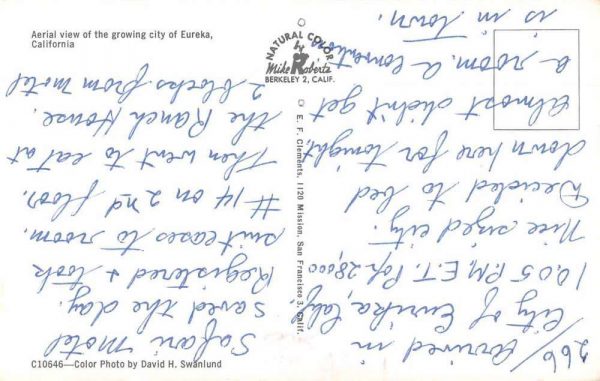 Aerial view of the growing city of Eureka,
California
NATURAL COLOR
by
Mike Roberts
BERKELEY 2, CALIF.
E. F. Clements, 1120 Mission, San Francisco 3, Calif.
C10646—Color Photo by David H. Swanlund
266/ Arrived in
City of Eurika, Calif.
10.05 P.M, E.T. Pop. 28,000
Nice sized city.
Decided to bed
down here for tonight,
almost didn't get
a room. a convention
is in town.
Safari Motel
saved the day.
Registered + took
suitcases to room.
#14 on 2nd floor.
Then went to eat at
the Ranch House.
2 blocks from motel